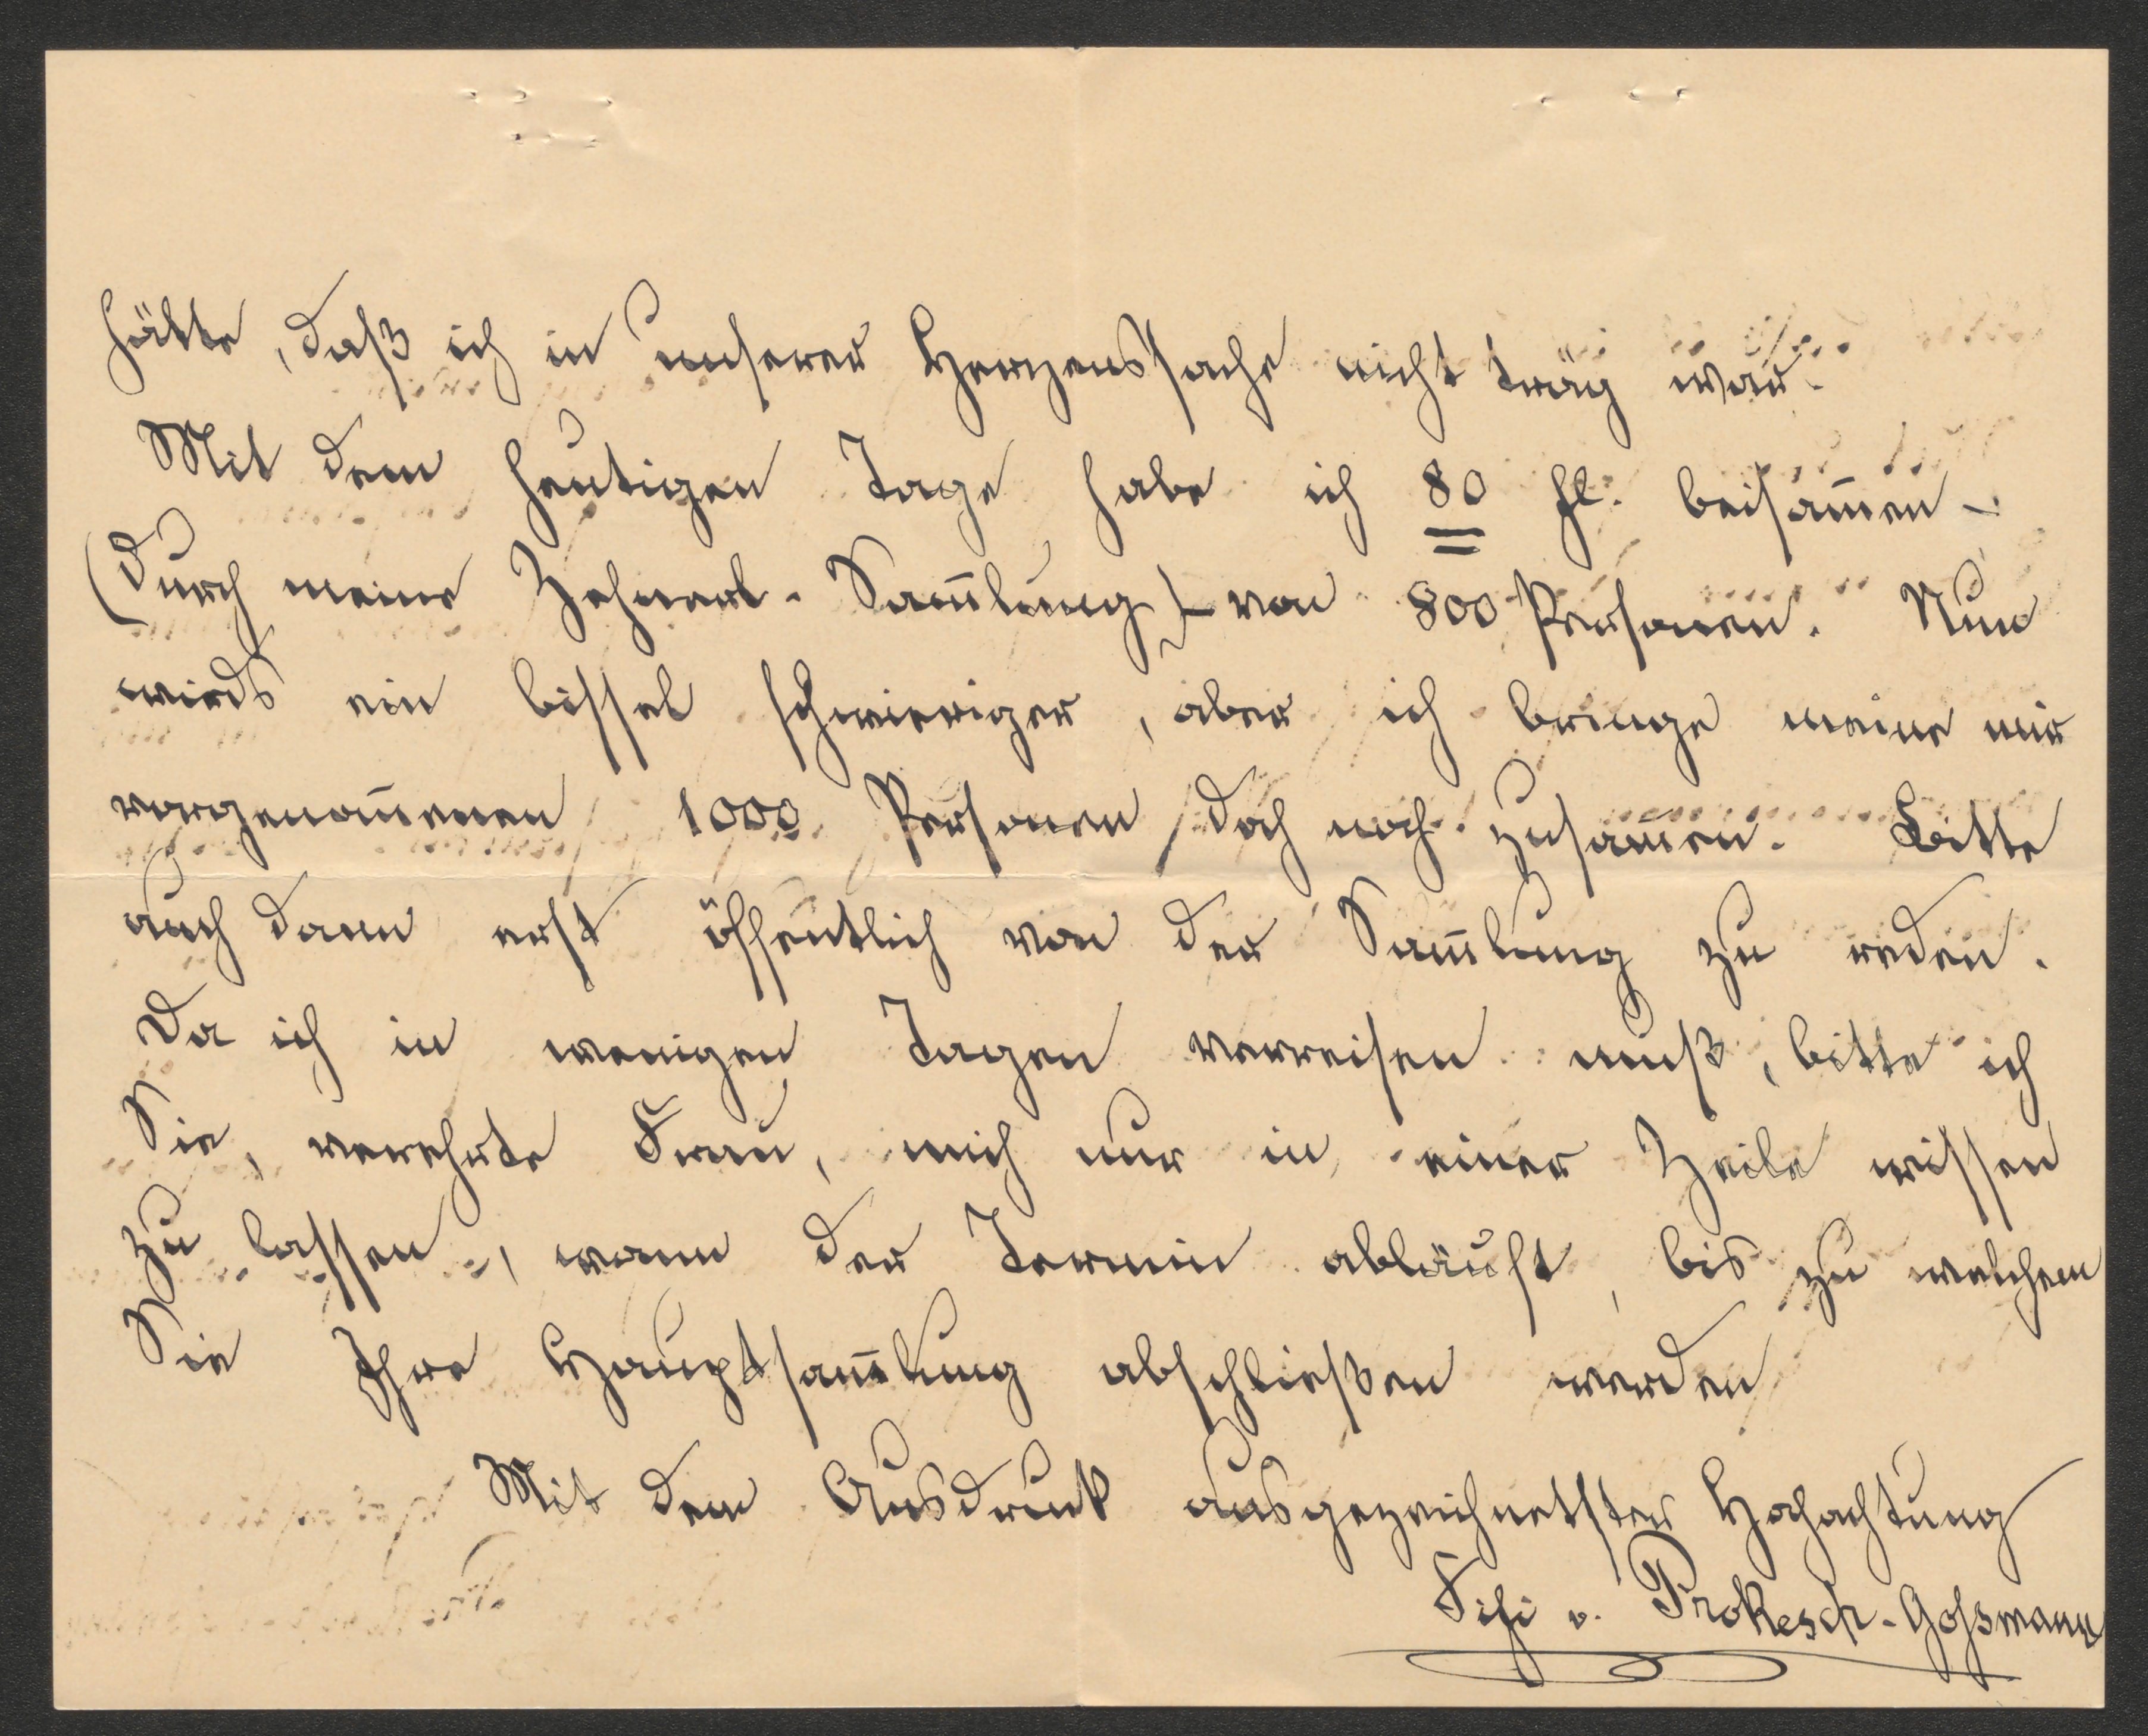 hätte, daß ich in unserer Herzenssache nicht träg war.
Mit dem heutigen Tage habe ich 80 fl. beisam̅en –
(durch meine Zehnerl-Sam̅lung) – von 800 Personen. Nun
wirds ein bissel schwieriger, aber ich bringe meine mir
vorgenom̅enen 1000 Personen doch noch zusam̅en. Bitte
auch dann erst öffentlich von der Sam̅lung zu reden.
Da ich in wenigen Tagen verreisen muß, bitte ich
Sie, verehrte Frau, mich nur in einer Zeile wissen
zu lassen, wann der Termin abläuft, bis zu welchem
Sie Ihre Hauptsam̅lung abschließen werden
Mit dem Ausdruck ausgezeichnetster Hochachtung
Fifi v. Prokesch-Goßmann